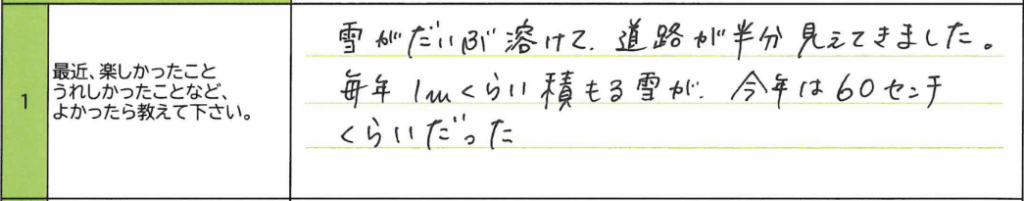 1
最近、楽しかったこと
うれしかったことなど、
よかったら教えて下さい。
雪がだいぶ溶けて、道路が半分見えてきました。
毎年1mくらい積もる雪が、今年は60センチ
くらいだった